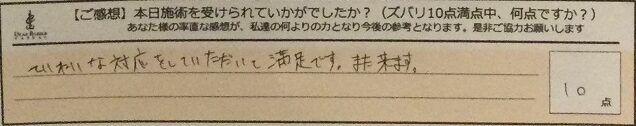 【ご感想】本日施術を受けられていかがでしたか？（ズバリ10点満点中、何点ですか？）
あなた様の率直な感想が、私達の何よりの力となり今後の参考となります。是非ご協力お願いします
ていねいな対応をしていただいて満足です。また来ます。
10
点